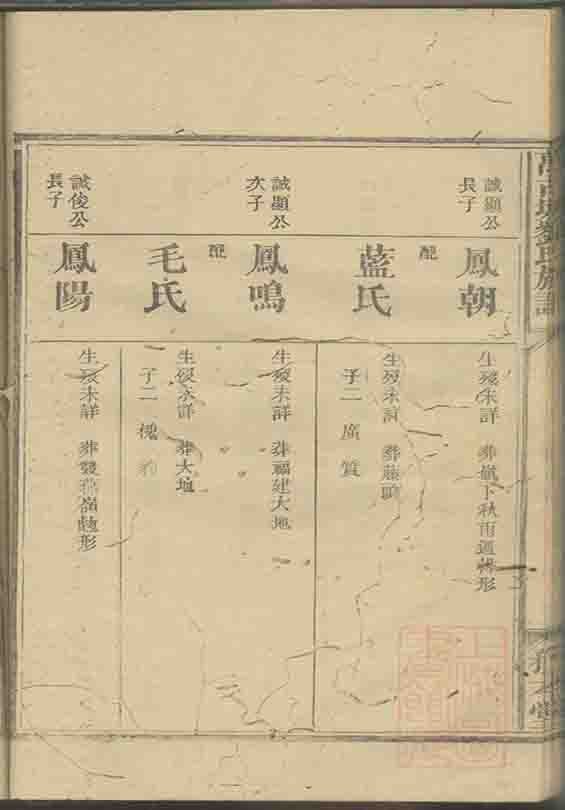 誠顯公
長子
鳳朝
生歿未詳 葬
下秋雨
形
配
藍氏
生歿未詳 葬藤
子二 廣 質
誠顯公
次子
鳳鳴
生歿未詳 葬福建大地
配
毛氏
生歿未詳 葬大地
子二 槐
誠俊公
長子
鳳陽
生歿未詳 葬雙
嶺
形
劉氏族譜